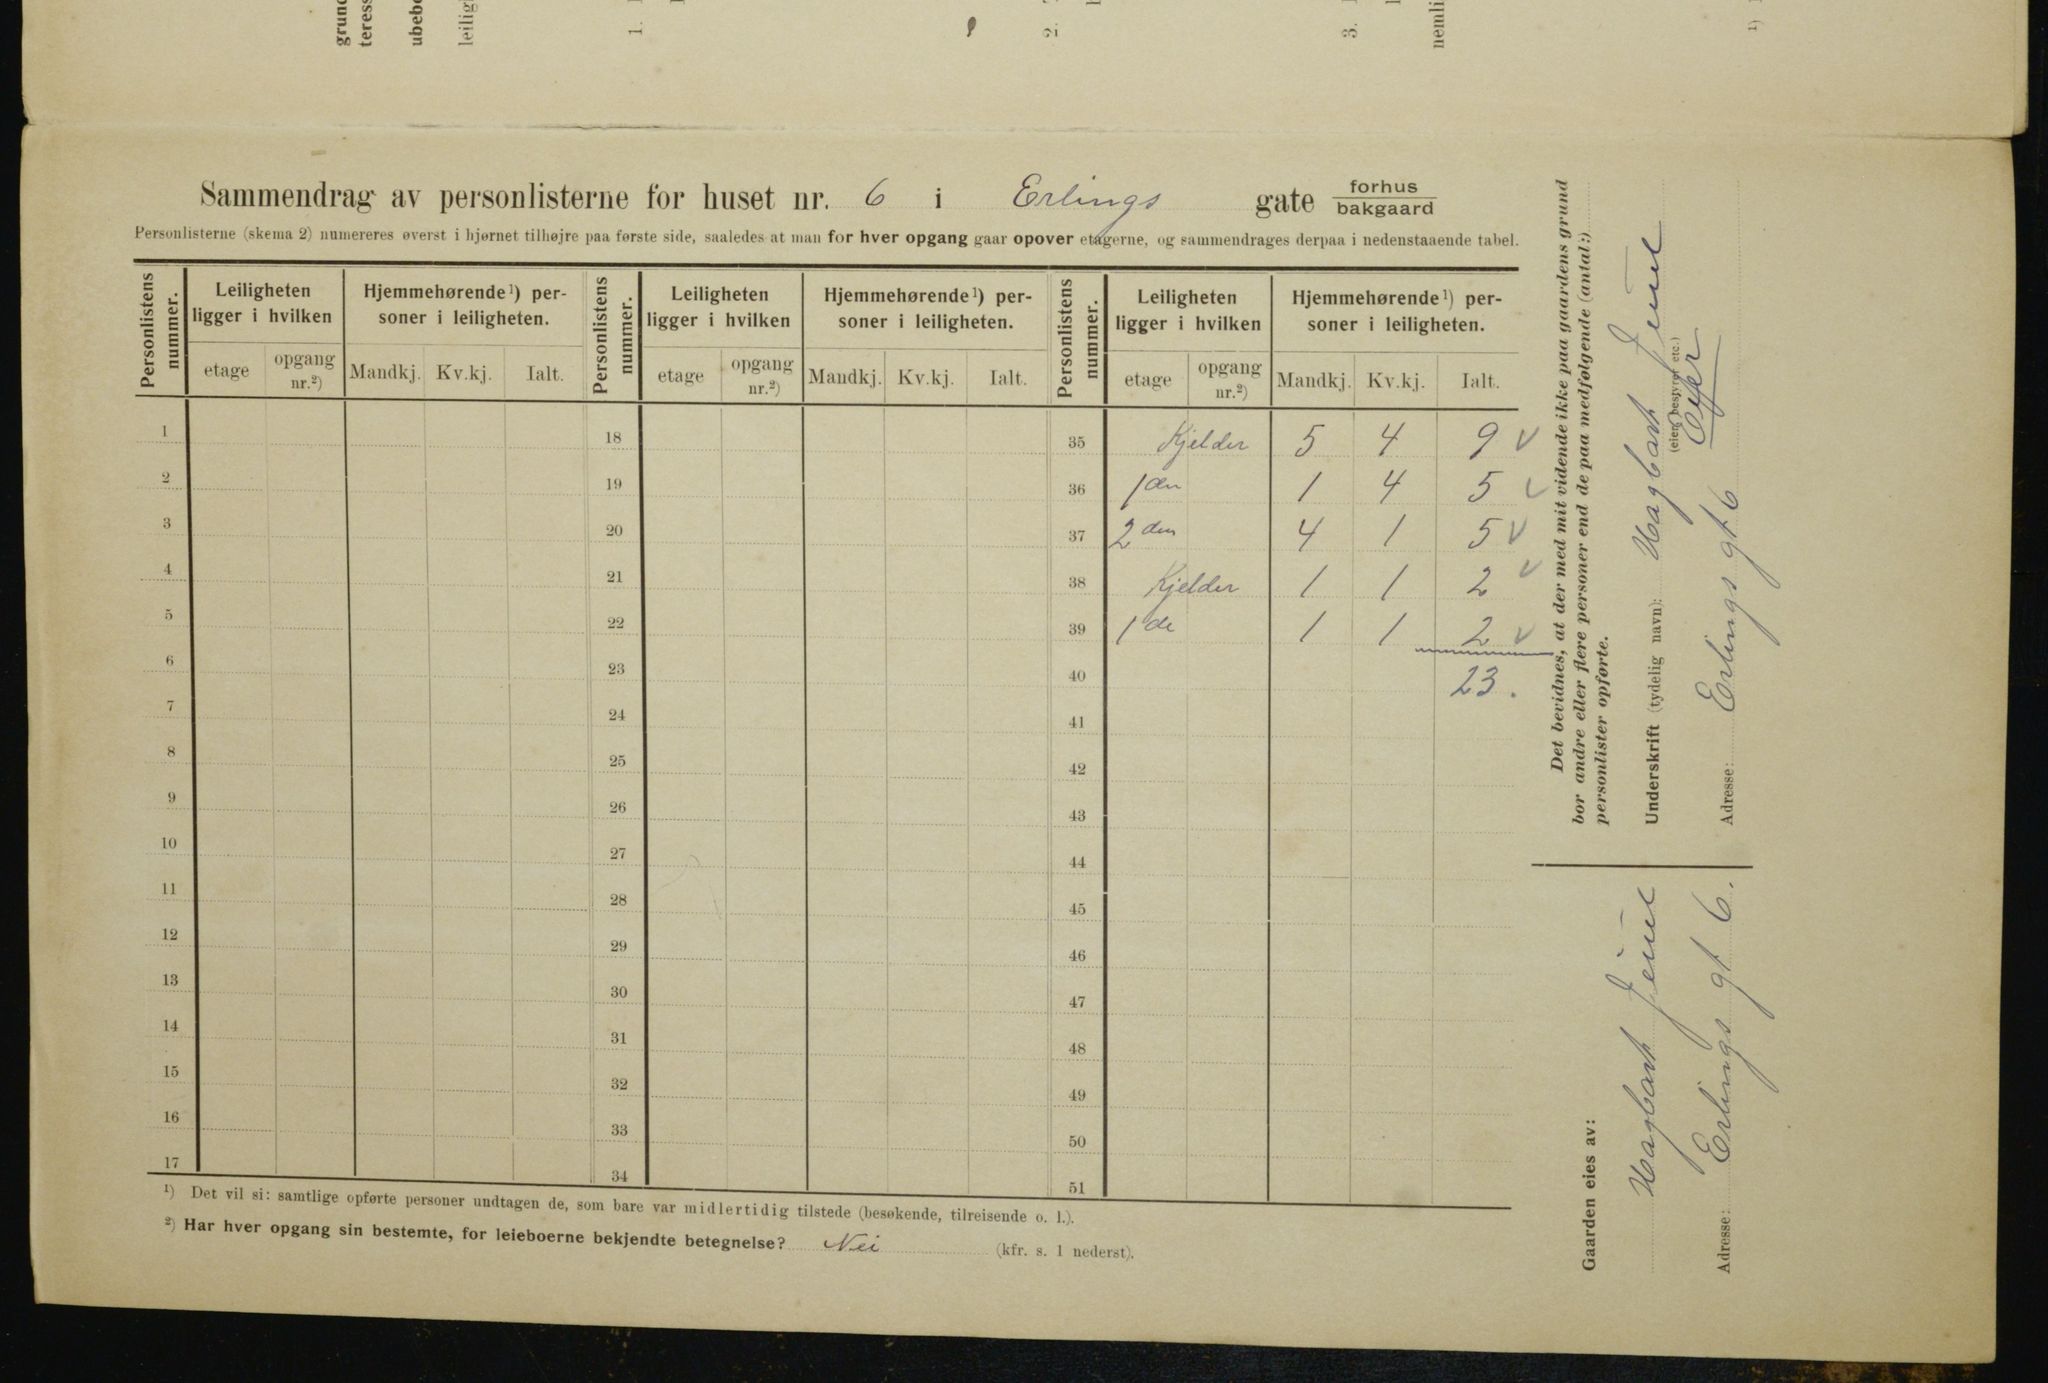 grund
teress
ubebo
leiligh
1.
2.
3.
nemli
1)
Sammendrag av personlisterne for huset nr. 6 i Erlings gate forhus
bakgaard
Personlisterne (skema 2) numereres øverst i hjørnet tilhøjre paa første side, saaledes at man for hver opgang gaar opover etagerne, og sammendrages derpaa i nedenstaaende tabel.
Personlistens nummer. Leiligheten ligger i hvilken Hjemmehørende ¹) personer i leiligheten. Personlistens nummer. Leiligheten ligger i hvilken Hjemmehørende ¹) personer i leiligheten. Personlistens nummer. Leiligheten ligger i hvilken Hjemmehørende ¹) personer i leiligheten.
etage opgang nr.²) Mandkj. Kv.kj. Ialt. etage opgang nr.²) Mandkj. Kv.kj. Ialt. etage opgang nr.²) Mandkj. Kv.kj. Ialt.
1 18 35 Kjelder 5 4 9 ✓
2 19 36 1 den 1 4 5 ✓
3 20 37 2 den 4 1 5 ✓
4 21 38 Kjelder 1 1 2 ✓
5 22 39 1 de 1 1 2 ✓
6 23 40 23.
7 24 41
8 25 42
9 26 43
10 27 44
11 28 45
12 29 46
13 30 47
14 31 48
15 32 49
16 33 50
17 34 51
¹) Det vil si: samtlige opførte personer undtagen de, som bare var midlertidig tilstede (besøkende, tilreisende o. l.).
²) Har hver opgang sin bestemte, for leieboerne bekjendte betegnelse? Nei (kfr. s. 1 nederst).
Det bevidnes, at der med mit vidende ikke paa gaardens grund
bor andre eller flere personer end de paa medfølgende (antal:)
personlister opførte.
Underskrift (tydelig navn): Hagbart
(eier, bestyrer etc.)
Eier
Adresse: Erlings gt 6
Gaarden eies av:
Hagbart
Adresse: Erlings gt 6.